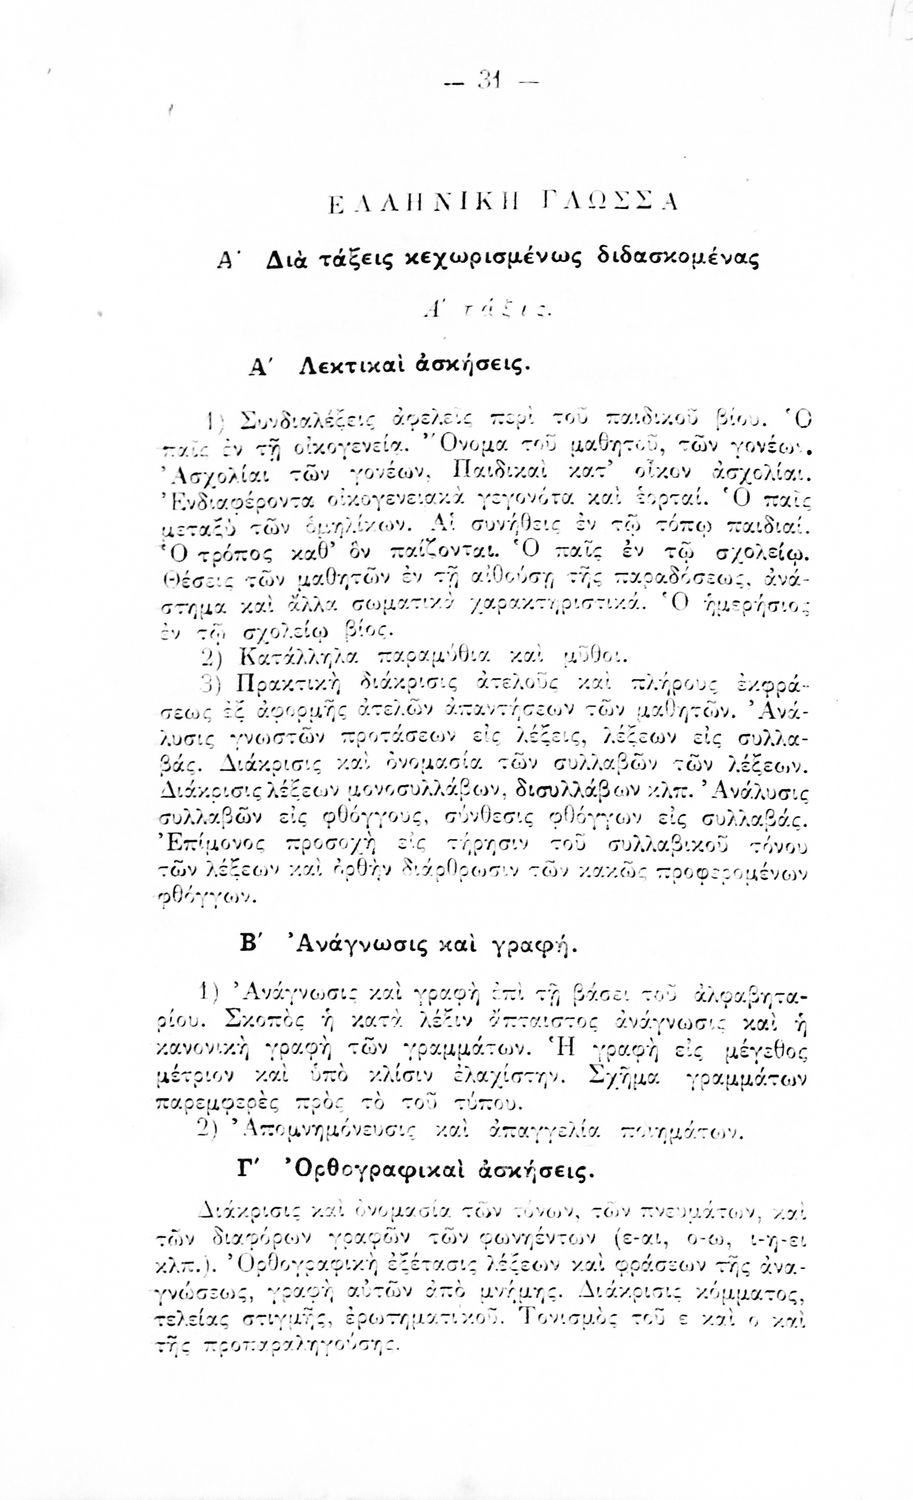 — 31 —
ΕΛΛΗΝΙΚΗ ΓΛΩΣΣΑ
Α΄ Διὰ τάξεις κεχωρισμένως διδασκομένας
Α΄ τάξις.
Α΄ Λεκτικαὶ ἀσκήσεις.
1) Συνδιαλέξεις ἀφελεῖς περὶ τοῦ παιδικοῦ βίου. Ὁ
παῖς ἐν τῇ οἰκογενείᾳ. Ὄνομα τοῦ μαθητοῦ, τῶν γονέων.
Ἀσχολίαι τῶν γονέων. Παιδικαὶ κατ’ οἶκον ἀσχολίαι.
Ἐνδιαφέροντα οἰκογενειακὰ γεγονότα καὶ ἑορταί. Ὁ παῖς
μεταξὺ τῶν ὁμηλίκων. Αἱ συνήθεις ἐν τῷ τόπῳ παιδιαί.
Ὁ τρόπος καθ’ ὃν παίζονται. Ὁ παῖς ἐν τῷ σχολείῳ.
Θέσεις τῶν μαθητῶν ἐν τῇ αἰθούσῃ τῆς παραδόσεως, ἀνά-
στημα καὶ ἄλλα σωματικὰ χαρακτηριστικά. Ὁ ἡμερήσιος
ἐν τῷ σχολείῳ βίος.
2) Κατάλληλα παραμύθια καὶ μῦθοι.
3) Πρακτικὴ διάκρισις ἀτελοῦς καὶ πλήρους ἐκφρά-
σεως ἐξ ἀφορμῆς ἀτελῶν ἀπαντήσεων τῶν μαθητῶν. Ἀνά-
λυσις γνωστῶν προτάσεων εἰς λέξεις, λέξεων εἰς συλλα-
βάς. Διάκρισις καὶ ὀνομασία τῶν συλλαβῶν τῶν λέξεων.
Διάκρισις λέξεων μονοσυλλάβων, δισυλλάβων κλπ. Ἀνάλυσις
συλλαβῶν εἰς φθόγγους, σύνθεσις φθόγγων εἰς συλλαβάς.
Ἐπίμονος προσοχὴ εἰς τήρησιν τοῦ συλλαβικοῦ τόνου
τῶν λέξεων καὶ ὀρθὴν διάρθρωσιν τῶν κακῶς προφερομένων
φθόγγων.
Β΄ Ἀνάγνωσις καὶ γραφή.
1) Ἀνάγνωσις καὶ γραφὴ ἐπὶ τῇ βάσει τοῦ ἀλφαβητα-
ρίου. Σκοπὸς ἡ κατὰ λέξιν ἄπταιστος ἀνάγνωσις καὶ ἡ
κανονικὴ γραφὴ τῶν γραμμάτων. Ἡ γραφὴ εἰς μέγεθος
μέτριον καὶ ὑπὸ κλίσιν ἐλαχίστην. Σχῆμα γραμμάτων
παρεμφερὲς πρὸς τὸ τοῦ τύπου.
2) Ἀπομνημόνευσις καὶ ἀπαγγελία ποιημάτων.
Γ΄ Ὀρθογραφικαὶ ἀσκήσεις.
Διάκρισις καὶ ὀνομασία τῶν τόνων, τῶν πνευμάτων, καὶ
τῶν διαφόρων γραφῶν τῶν φωνηέντων (ε-αι, ο-ω, ι-η-ει
κλπ.). Ὀρθογραφικὴ ἐξέτασις λέξεων καὶ φράσεων τῆς ἀνα-
γνώσεως, γραφὴ αὐτῶν ἀπὸ μνήμης. Διάκρισις κόμματος,
τελείας στιγμῆς, ἐρωτηματικοῦ. Τονισμὸς τοῦ ε καὶ ο καὶ
τῆς προπαραληγούσης.